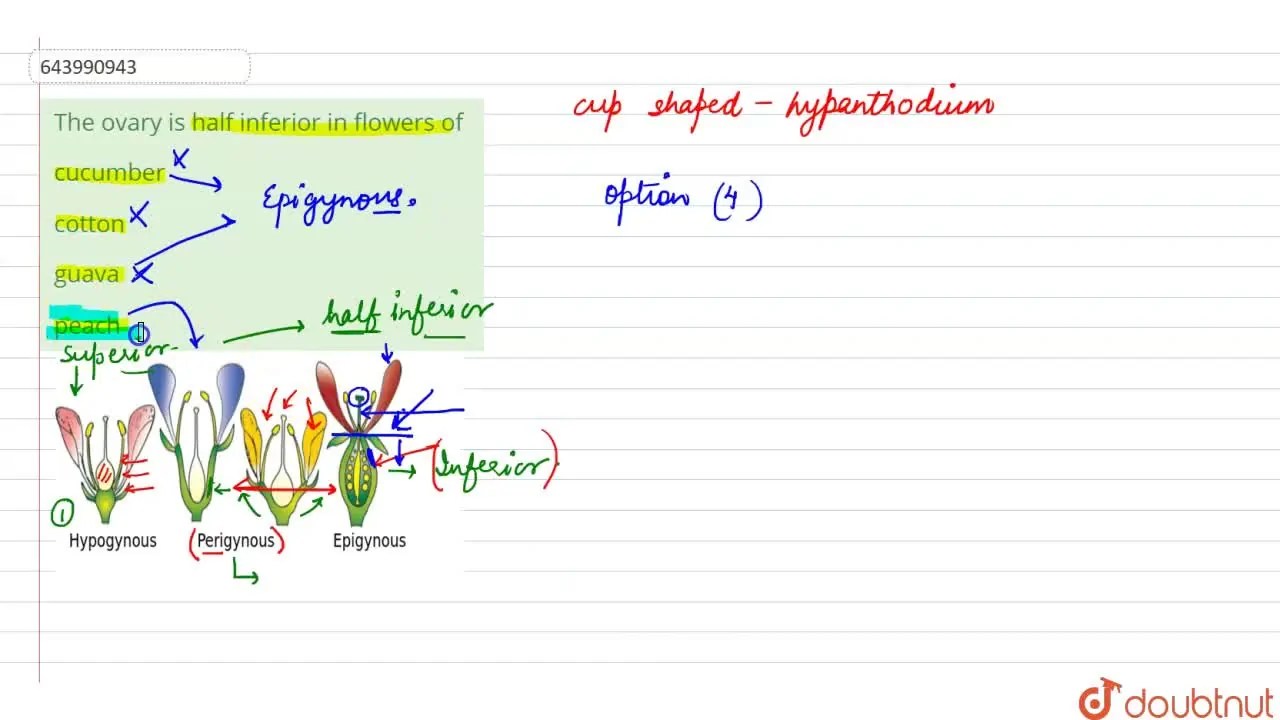 643990943
The ovary is half inferior in flowers of
cucumber X
cotton X
guava X
peach
Epigynous.
half inferior
superior
(Inferior)
1
Hypogynous
(Perigynous)
Epigynous
cup shaped - hypanthodium
option (4)
doubtnut